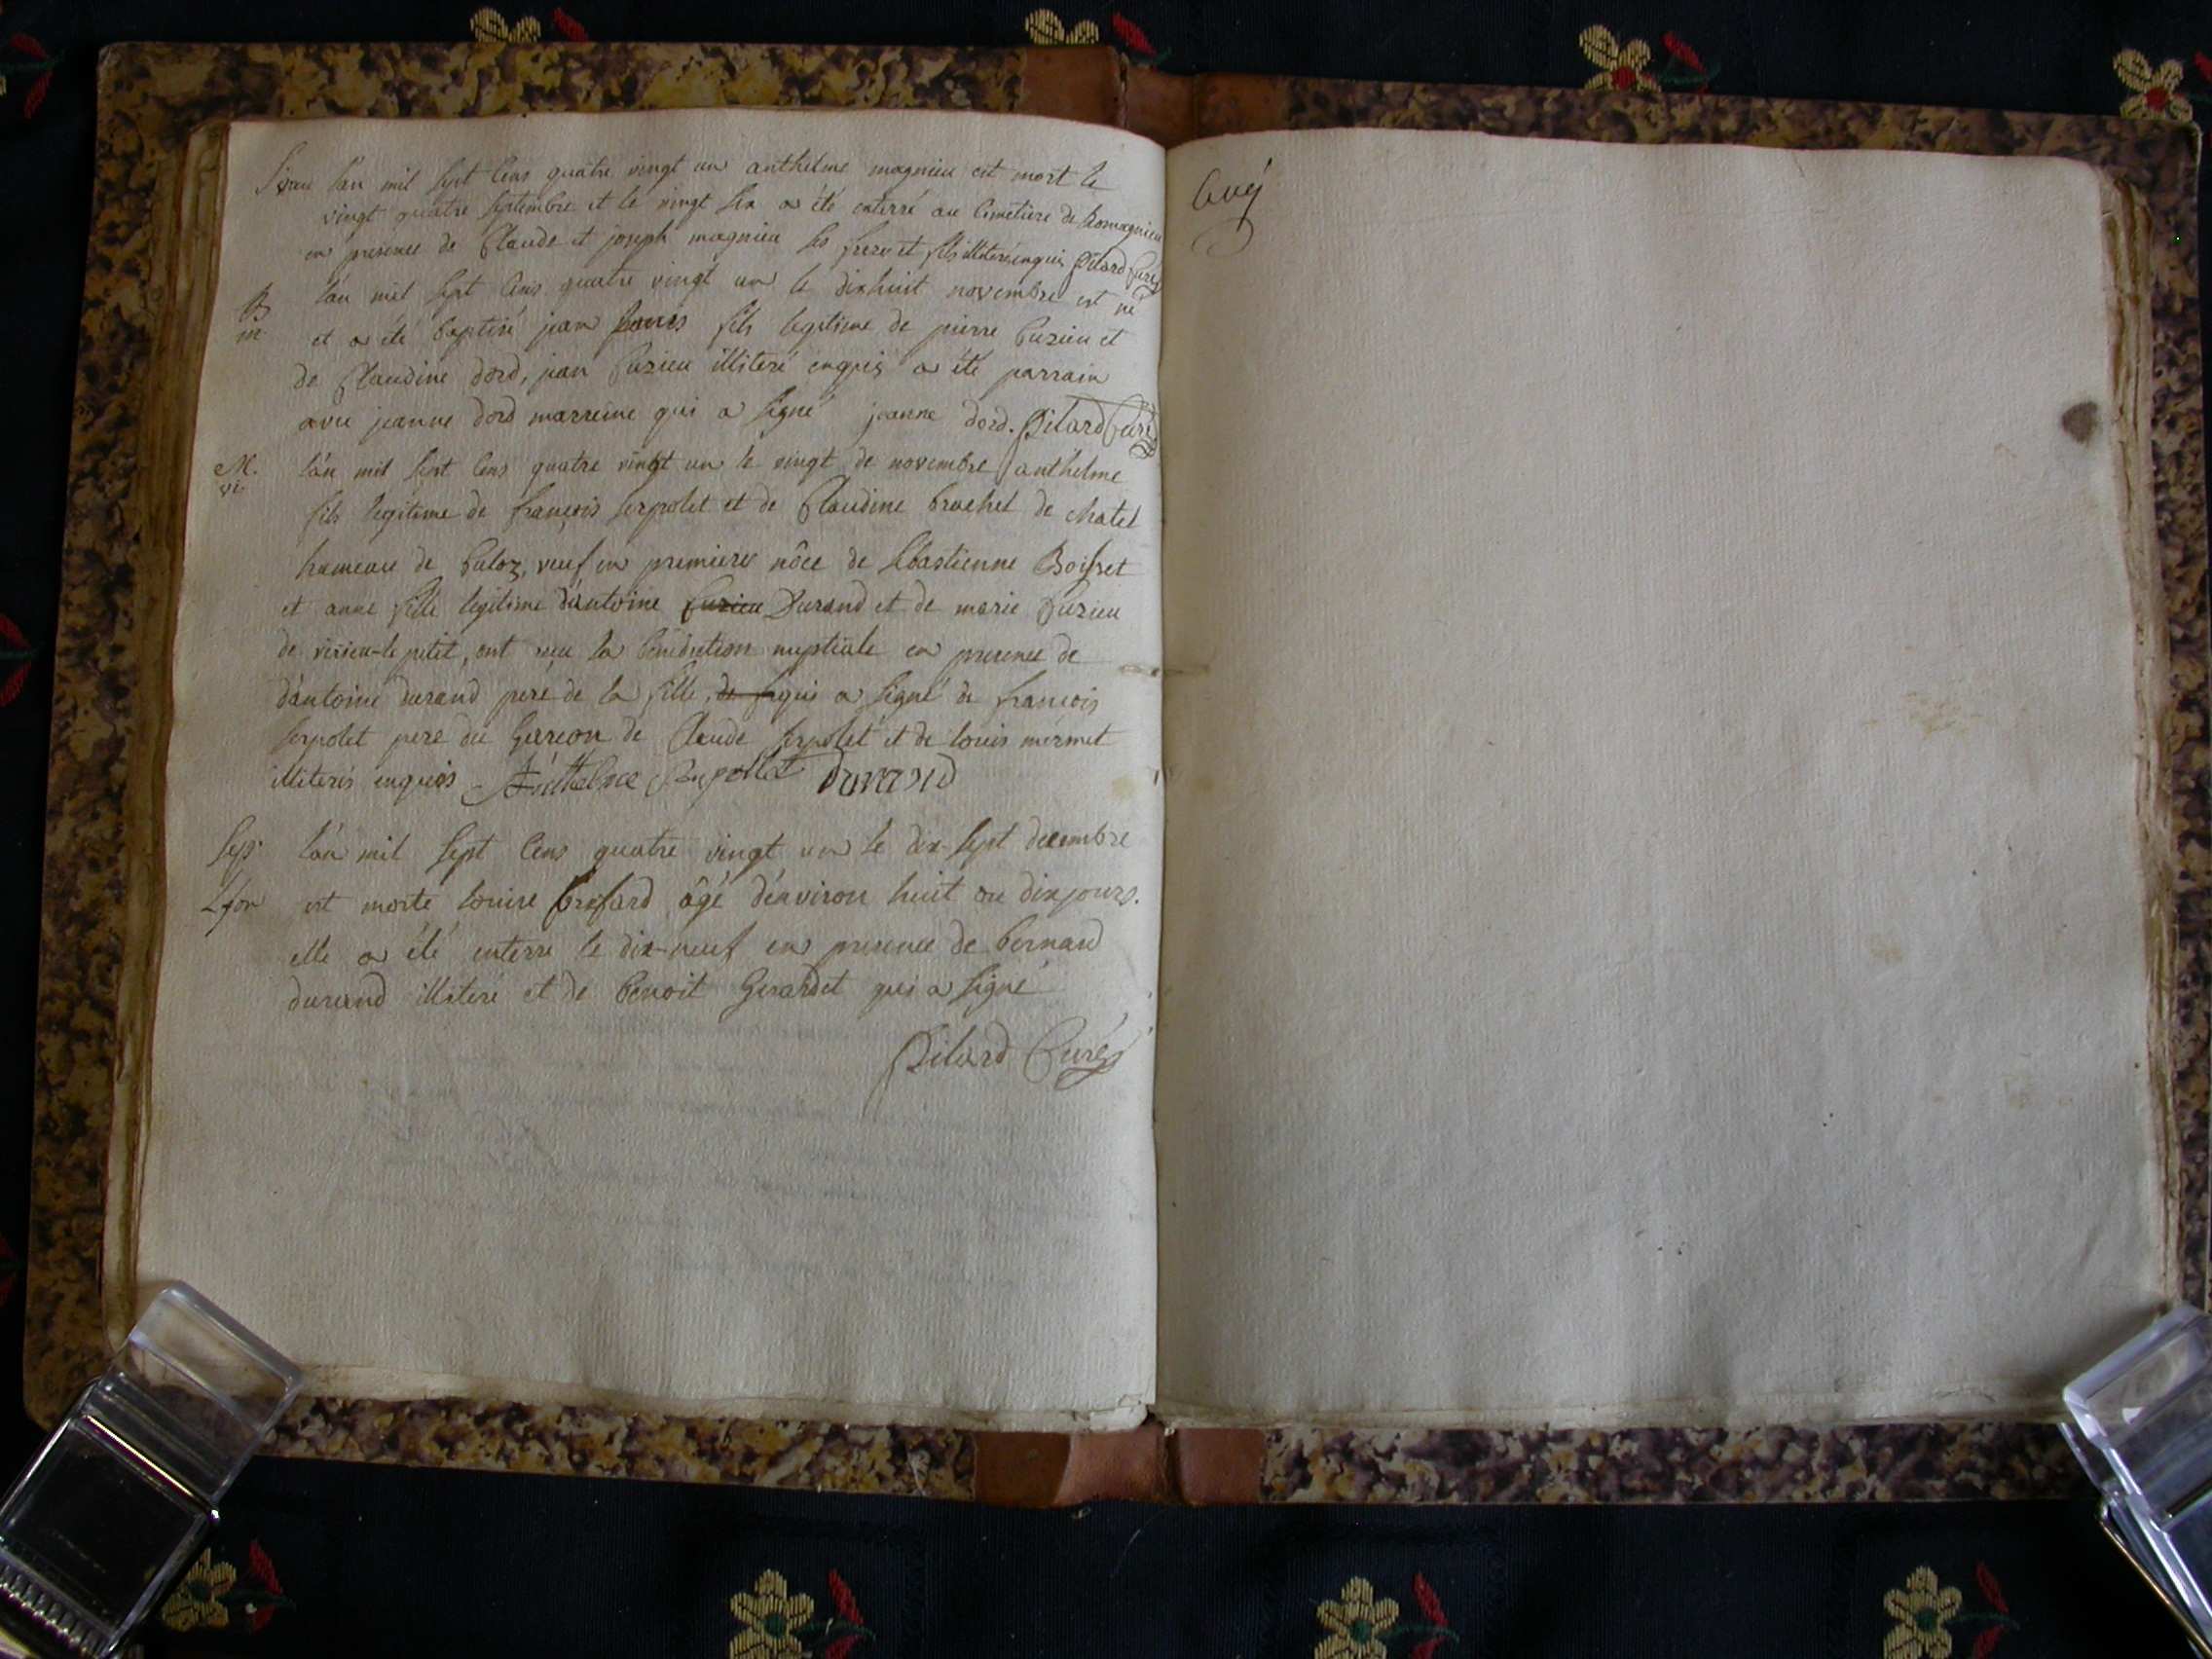 l'an mil sept cens quatre vingt un anthelme magnieu est mort le
vingt quatre septembre et le vingt six a été enterré au cimetiere de Romagnieu
en presence de Claude et joseph magnieu ses frere et fils illiterés enquis Pilard Curé
B l'an mil sept cens quatre vingt un le dixhuit novembre est né
et a été baptisé jean fils legitime de pierre Cuzieu et
de Claudine dord, jean Cuzieu illiteré enquis a été parrain
avec jeanne dord marreine qui a signé jeanne dord. Pilard Curé
M. l'an mil sept cens quatre vingt un le vingt de novembre anthelme
vi.
fils legitime de françois serpolet et de Claudine brachet de chatel
hameau de Culoz, veuf en premieres nôce de sebastienne Boisset
et anne fille legitime d'antoine Cuzieu Durand et de marie Cuzieu
de virieu-le petit, ont reçu la benediction nuptiale en presence de
d'antoine durand pere de la fille, qui a signé de francois
serpolet pere du Garcon de Claude serpolet et de louis mermet
illiterés enquis durand
Sep. l'an mil sept cens quatre vingt un le dix-sept decembre
est morte louise âgé d'environ huit ou dix jours.
elle a été enterré le dix-neuf en presence de bernard
durand illiteré et de benoit Gerardet qui a signé
Pilard Curé